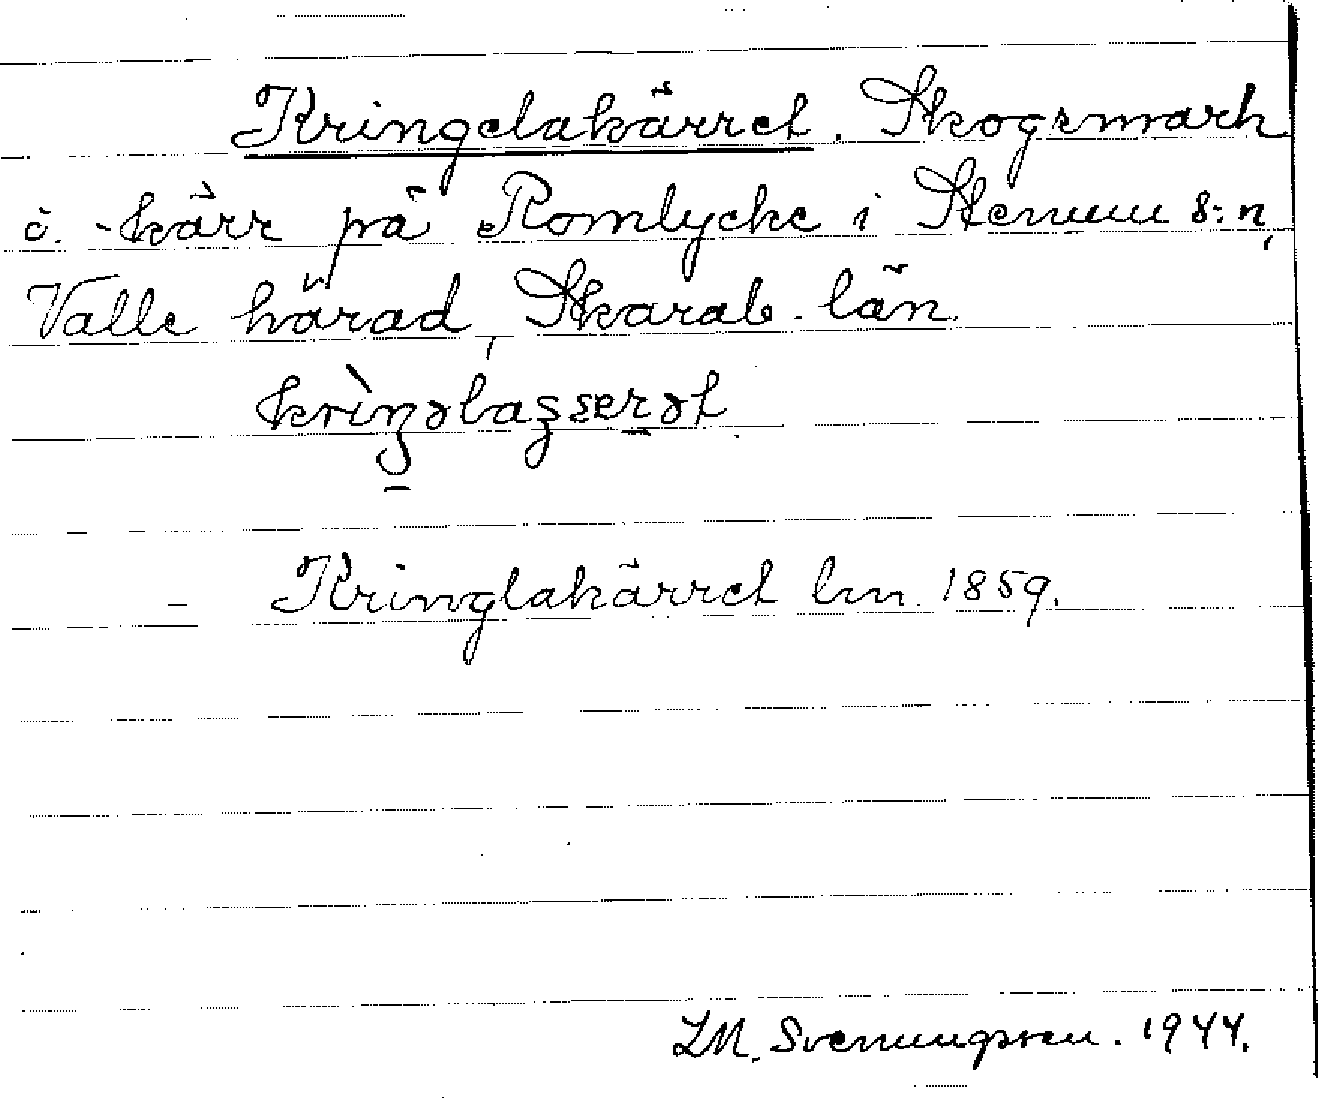 Kringelakärret. Skogsmark
o. -kärr på Romlycke i Stenum s:n,
Valle härad, Skarab. län.
krìŋəlaʂserət
Kringlakärret lm. 1859.
LM. Svenungsson. 1944.